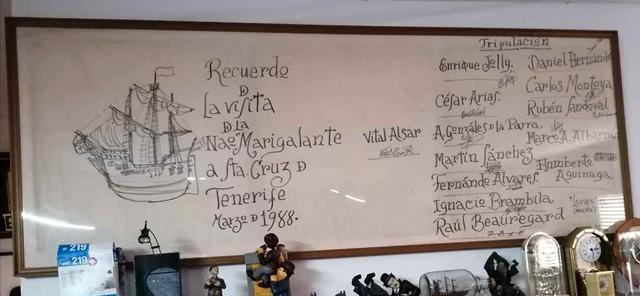 Recuerdo
D
La visita
D LA
Nao "Marigalante
a Sta. Cruz D
Tenerife
Marzo D 1988.
Vital Alsar
Tripulación
Enrique Jolly.
César Arias.
A. Gonzáles D la Parra.
Martín Sánchez
Fernánde Alvares.
Ignacio Brambila.
Raúl Beauregard
Daniel Hernánde
Carlos Montoya
Rubén Sandoval
Marco A. Albarrán
Humberto
Aguinaga.
219
219